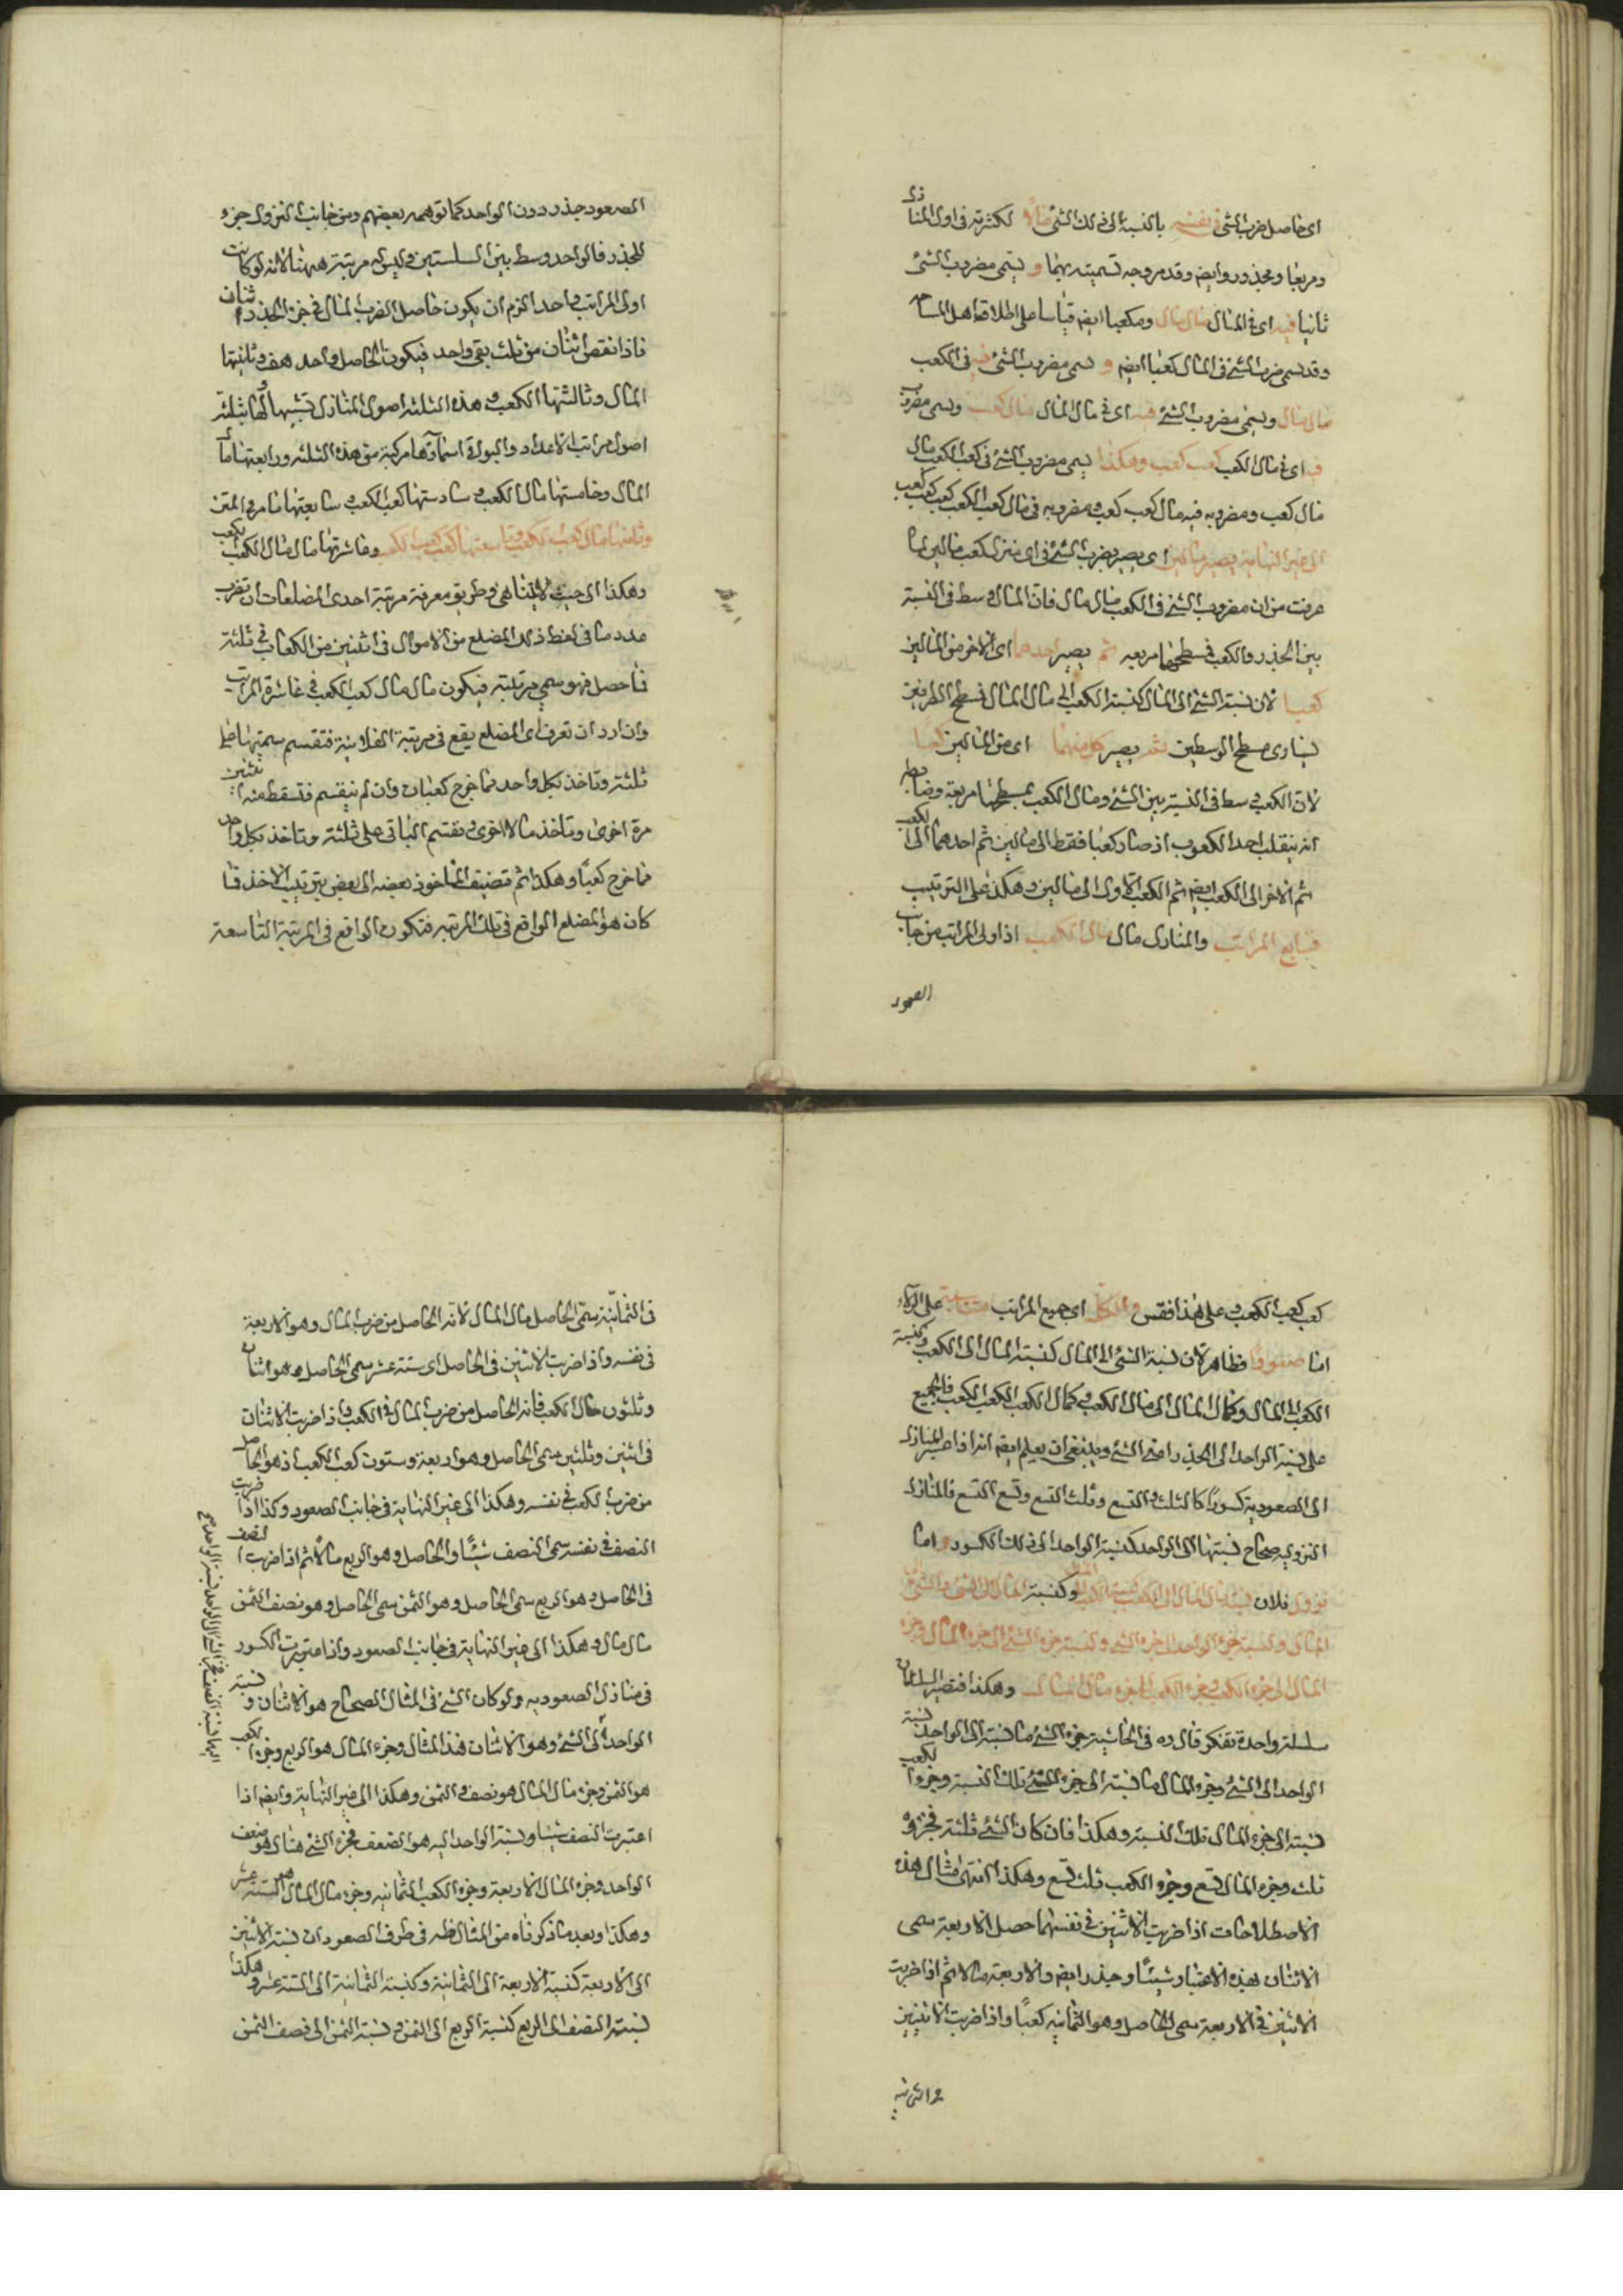 اى حاصل ضرب الشى فى نفسه بالنسبة الى ذلك الشئ مالا لكثرته فى اول المنازل
ومربعا ومجذورا وايضه وقد مر وجه تسميته بهما و يسمى مضروب الشئ
ثانيا فيه اى فى المال مال مال ومكعبا ايضه قياسا على اطلاق اهل المساحه
وقد يسمى ضرب الشئ فى المال كعبا ايضه و يسمى مضروب الشئ فيه فى الكعب
مال مال ويسمى مضروب الشئ فيه اى فى مال المال مال كعب ويسمى مضروب
فيه اى فى مال الكعب كعب كعب وهكذا يسمى مضروب الشئ فى كعب الكعب مال
مال كعب ومضروبه فيه مال كعب كعب ومضروبه فى مال كعب الكعب كعب كعب كعب
الى غير النهاية يصير مالين اى يصير بضرب الشئ فى اى منزل كعب مالين لما
عرفت من ان مضروب الشئ فى الكعب مال مال فان المال وسط فى النسبة
بين الجذر والكعب فسطحهما مربعه ثم يصير احدهما اى الاخر من المالين
كعبا لان نسبة الشئ الى المال كنسبة الكعب الى مال المال فسطح الطرفين
يساوى مسطح الوسطين ثم يصير كل منهما اى من المالين كعبا
لان الكعب وسط فى النسبة بين الشئ ومال الكعب فمسطحهما مربعه وضابطه
انه ينقلب احد الكعوب اذ صار كعبا فقط الى مالين ثم احدهما الى الكعب
ثم الاخر الى الكعب ايضه ثم الكعب الاول الى مالين وهكذا على الترتيب
فسابع المراتب والمنازل مال مال الكعب اذ اولى المراتب من جانب
الصعود
الصعود جذر دون الواحد كما توهمه بعضهم ومن جانب النزول جزء
الجذر فالواحد وسط بين السلستين وليس له مرتبة ههنا لانه لو كانت
اولى المراتب واحد الزم ان يكون حاصل الضرب المال فى جزء الجذر اثنان
فاذا نقص اثنان من ثلث بقى واحد فيكون الحاصل واحد هف وثانيتها
المال وثالثتها الكعب وهذه الثلثة اصول المنازل تشبيها لها بثلثة
اصول مراتب الاعداد والبواقى اسماؤها مركبة من هذه الثلثة ورابعتها مال
المال وخامستها مال الكعب وسادستها كعب الكعب وسابعتها ما مر فى المتن
وثامنتها مال كعب الكعب وتاسعتها كعب كعب الكعب وعاشرتها مال مال الكعب كعب
وهكذا الى حيث لا يتناهى وطريق معرفة مرتبة احدى المضلعات ان تضرب
عدد ما فى لفظ ذلك المضلع من الاموال فى اثنين ومن الكعاب فى ثلثة
فما حصل فهو سمى مرتبته فيكون مال مال كعب الكعب فى عاشرة المراتب
وان اردت ان تعرف اى المضلع يقع فى مرتبة الفلانية فتقسم سميتها على
ثلثة وتاخذ بكل واحد مما خرج كعبا وان لم ينقسم فتسقط منه اثنين
مرة اخرى وتاخذ مالا اخرى فتقسم الباقى على ثلثة وتاخذ بكل واحد
مما خرج كعبا وهكذا ثم تضيف الماخوذ بعضه الى بعض بترتيب الاخذ فما
كان هو المضلع الواقع فى تلك المرتبه فتكون الواقع فى المرتبة التاسعة
كعب كعب الكعب وعلى هذا فقس والكل اى جميع المراتب متناسبة على الولاء
اما صعودا فظاهر لان نسبة الشئ الى المال كنسبة المال الى الكعب وكنسبة
الكعب الى المال وكمال المال الى مال الكعب وكمال الكعب الكعب الكعب فالجميع
على نسبة الواحد الى الجذر اعنى الشئ وينبغى ان يعلم ايضه انه اذا صير المنازل
الى الصعوديه كسورا كالثلث والتسع وثلث التسع وتسع التسع فالمنازل
النزوليه صحاح نسبتها الى الواحد كنسبة الواحد الى ذلك الكسور واما
نزولا فلان نسبة مال المال الى الكعب كنسبة الكعب الى المال وكنسبة المال الى الشئ والشئ الى
المال وكنسبة جزء الواحد الى جزء الشئ وكنسبة جزء الشئ الى جزء المال وجزء
المال الى جزء الكعب وجزء الكعب الى جزء مال المال وهكذا فتصير السلسلتان
سلسلة واحدة تفكر قال ره فى الحاشية جزء الشئ ما نسبته الى الواحد نسبة
الواحد الى الشئ وجزء المال ما نسبته الى جزء الشئ تلك النسبة وجزء الكعب
نسبته الى جزء المال تلك النسبة وهكذا فان كان الشئ ثلثة فجزؤه
ثلث وجزء المال تسع وجزء الكعب ثلث تسع وهكذا انتهى مثال هذه
الاصطلاحات اذا ضربت الاثنين فى نفسهما حصل الاربعة يسمى
الاثنان بهذه الاعتبار شيئا وجذرا ايضه والاربعة مالا ثم اذا ضربت
الاثنين فى الاربعة يسمى الحاصل وهو الثمانيه كعبا واذا ضربت الاثنين
فى الثمانيه
فى الثمانية يسمى الحاصل مال المال لانه الحاصل من ضرب المال وهو الاربعة
فى نفسه واذا ضربت الاثنين فى الحاصل اى ستة عشر يسمى الحاصل وهو اثنان
وثلثون مال الكعب فانه الحاصل من ضرب المال فى الكعب واذا ضربت الاثنان
فى اثنين وثلثين يسمى الحاصل وهو اربعة وستون كعب الكعب اذ هو الحاصل
من ضرب الكعب فى نفسه وهكذا الى غير النهاية فى جانب الصعود وكذا اذا ضربت
النصف فى نفسه يسمى النصف شيئا والحاصل وهو الربع مالا ثم اذا ضربت النصف
فى الحاصل وهو الربع يسمى الحاصل وهو الثمن يسمى الحاصل وهو نصف الثمن
مال مال وهكذا الى غير النهاية فى جانب الصعود واذا اعتبرت الكسور
فى منازل الصعوديه ولو كان الشئ فى المثال الصحاح هو الاثنان ونسبة
الواحد الى الشئ وهو الاثنان فهذا المثال وجزء المال هو الربع وجزء الكعب
هو الثمن وجزء مال المال هو نصف الثمن وهكذا الى غير النهاية وايضه اذا
اعتبرت النصف شيئا ونسبة الواحد اليه هو الضعف فجزء الشئ هنا هو ضعف
الواحد وجزء المال الاربعة وجزء الكعب الثمانيه وجزء مال المال هو الستة عشر
وهكذا وبعد ما ذكرناه من المثال ظهر فى طرف الصعود ان نسبة الاثنين
الى الاربعة كنسبة الاربعة الى الثمانية وكنسبة الثمانية الى الستة عشر وهكذا
نسبة النصف الى الربع كنسبة الربع الى الثمن ونسبة الثمن الى نصف الثمن